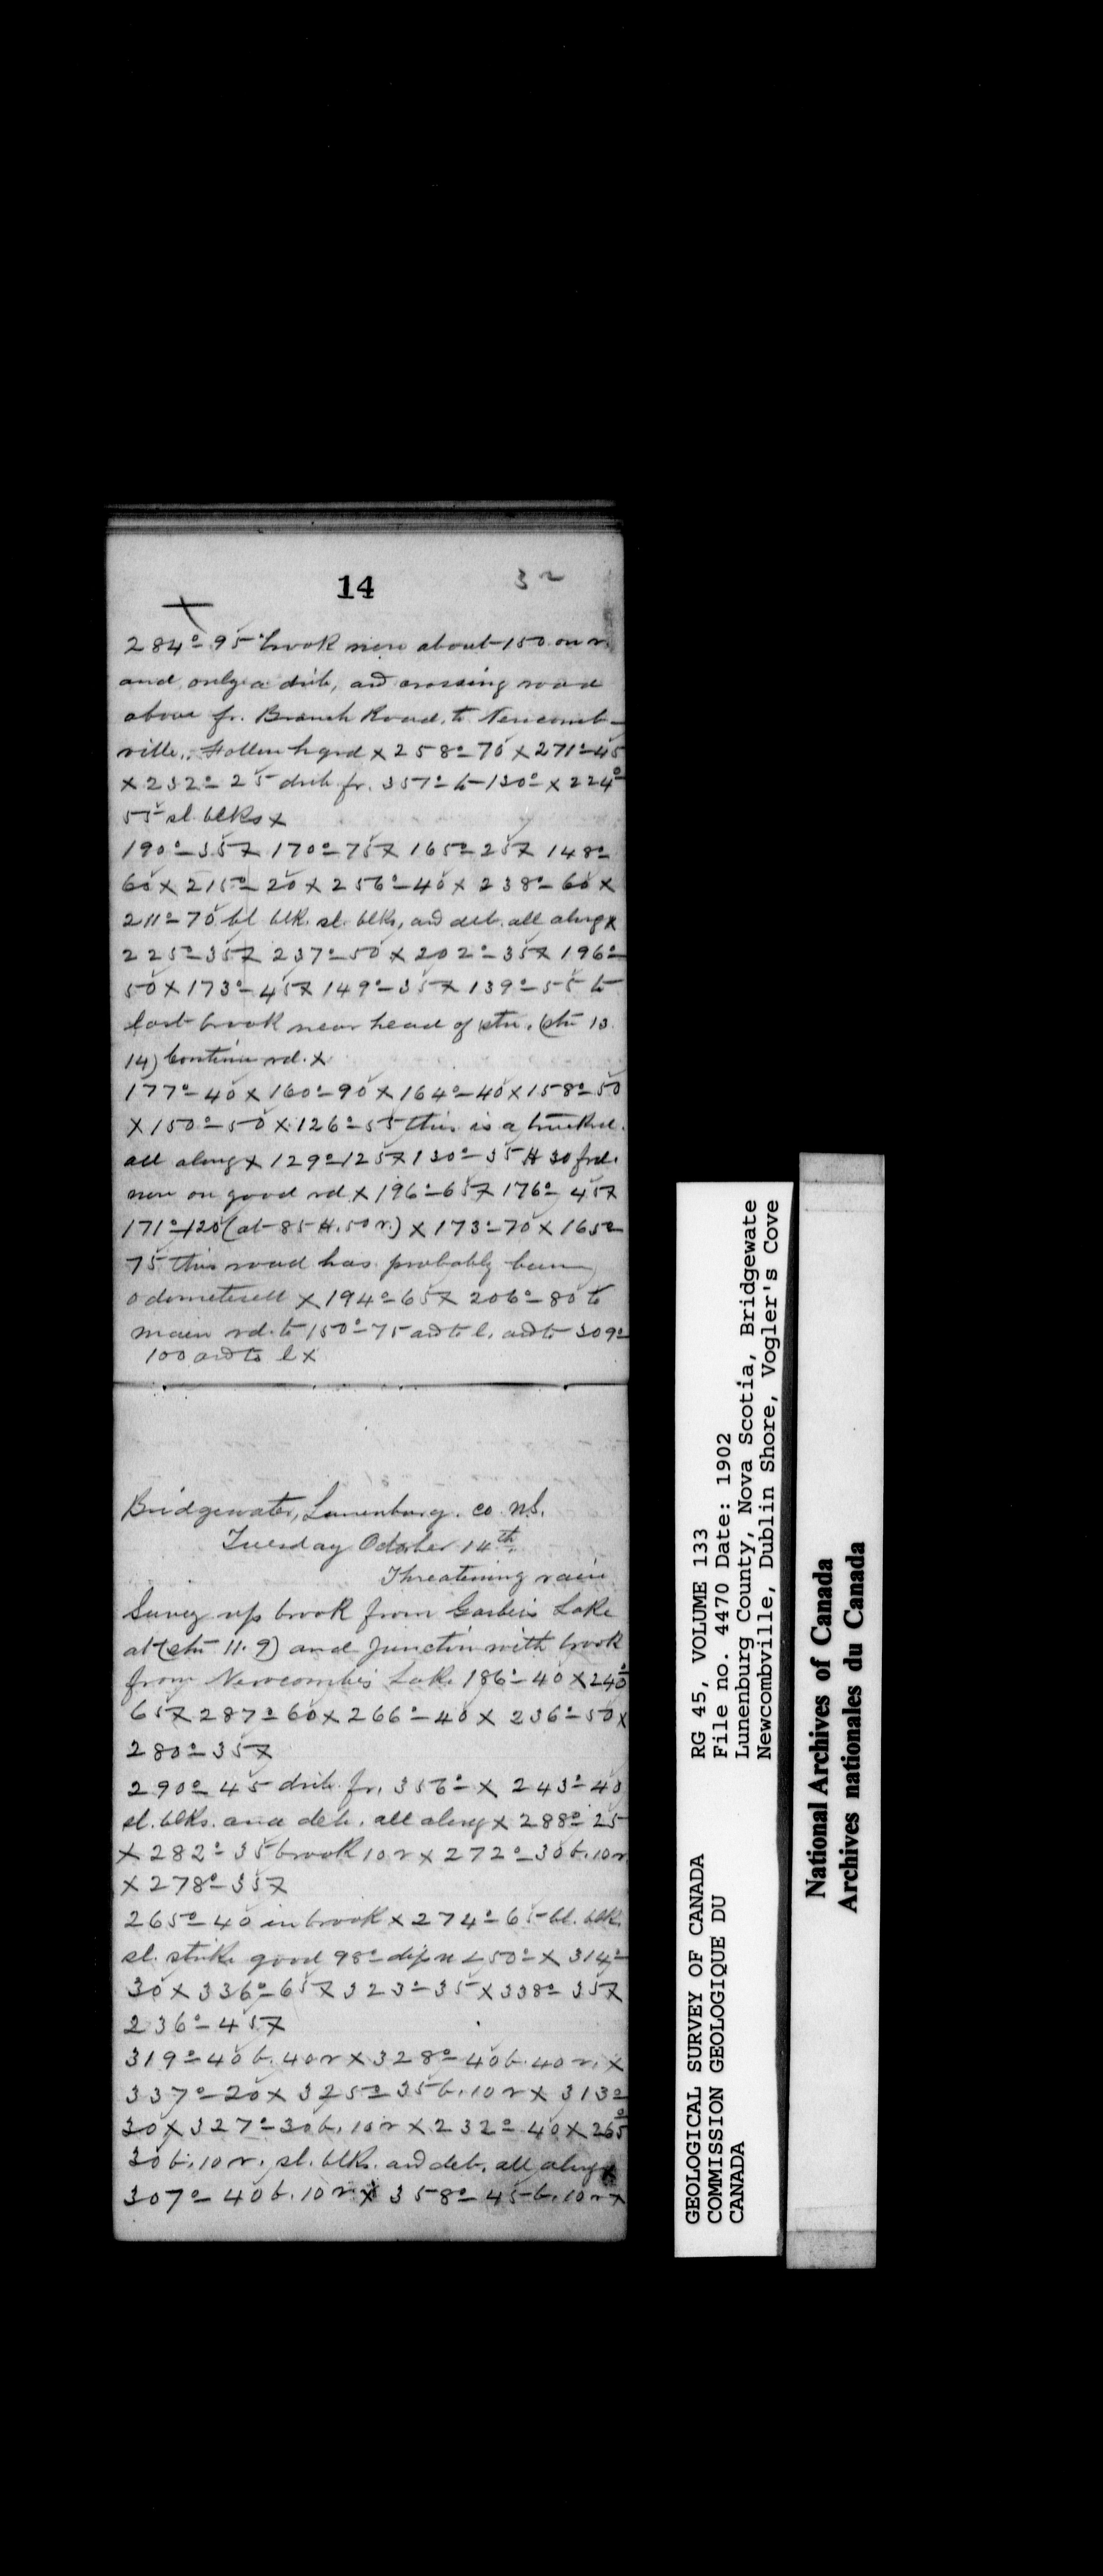 14
32
X
284° 95 brook now about 150 on r.
and only a drib, and crossing road
above fr. Branch Road to Newcomb-
ville. Follow hyrd x 258° 70 x 271° 45
x 232° 25 drib fr. 357° to 130° x 224°
55 sl. blks x
190° 35 x 170° 75 x 165° 25 x 148°
60 x 215° 20 x 256° 40 x 238° 60 x
211° 70 bl. blk. sl. blks, and deb. all along x
225° 35 x 237° 50 x 202° 35 x 196°
50 x 173° 45 x 149° 35 x 139° 55 to
last brook near head of stn. (stn 13.
14) Continue rd. x
177° 40 x 160° 90 x 164° 40 x 158° 50
x 150° 50 x 126° 55 this is a
all along x 129° 125 x 130° 35 H 30 frd.
now on good rd x 196° 65 x 176° 45 x
171° 120 (at 85 H. 50 r.) x 173° 70 x 165°
75 this road has probably been
odometered x 194° 65 x 206° 80 to
main rd. to 150° 75 and to l. and to 309°
100 and to l x
Bridgewater, Lunenburg. Co. N.S.
Tuesday October 14th
Threatening rain
Survey up brook from Lake
at (stn 11.9) and Junction with brook
from Newcomb's Lake 186° 40 x 240°
65 x 287° 60 x 266° 40 x 236° 50 x
280° 35 x
290° 45 drib fr. 356° x 243° 40
sl. blks. and deb. all along x 288° 25
x 282° 35 brook 10 r x 272° 30 b. 10 r
x 278° 35 x
265° 40 in brook x 274° 65 bl. blk.
sl. strike good 98° dip n ∠50° x 314°
30 x 336° 65 x 323° 35 x 338° 35 x
236° 45 x
319° 40 b. 40 r x 328° 40 b. 40 r. x
337° 20 x 325° 35 b. 10 r x 313°
30 x 327° 30 b. 10 r x 232° 40 x 265°
30 b. 10 r. sl. blks. and deb. all along x
307° 40 b. 10 r. x 358° 45 b. 10 r x
GEOLOGICAL SURVEY OF CANADA
COMMISSION GEOLOGIQUE DU
CANADA
RG 45, VOLUME 133
File no. 4470 Date: 1902
Lunenburg County, Nova Scotia, Bridgewate
Newcombville, Dublin Shore, Vogler's Cove
National Archives of Canada
Archives nationales du Canada